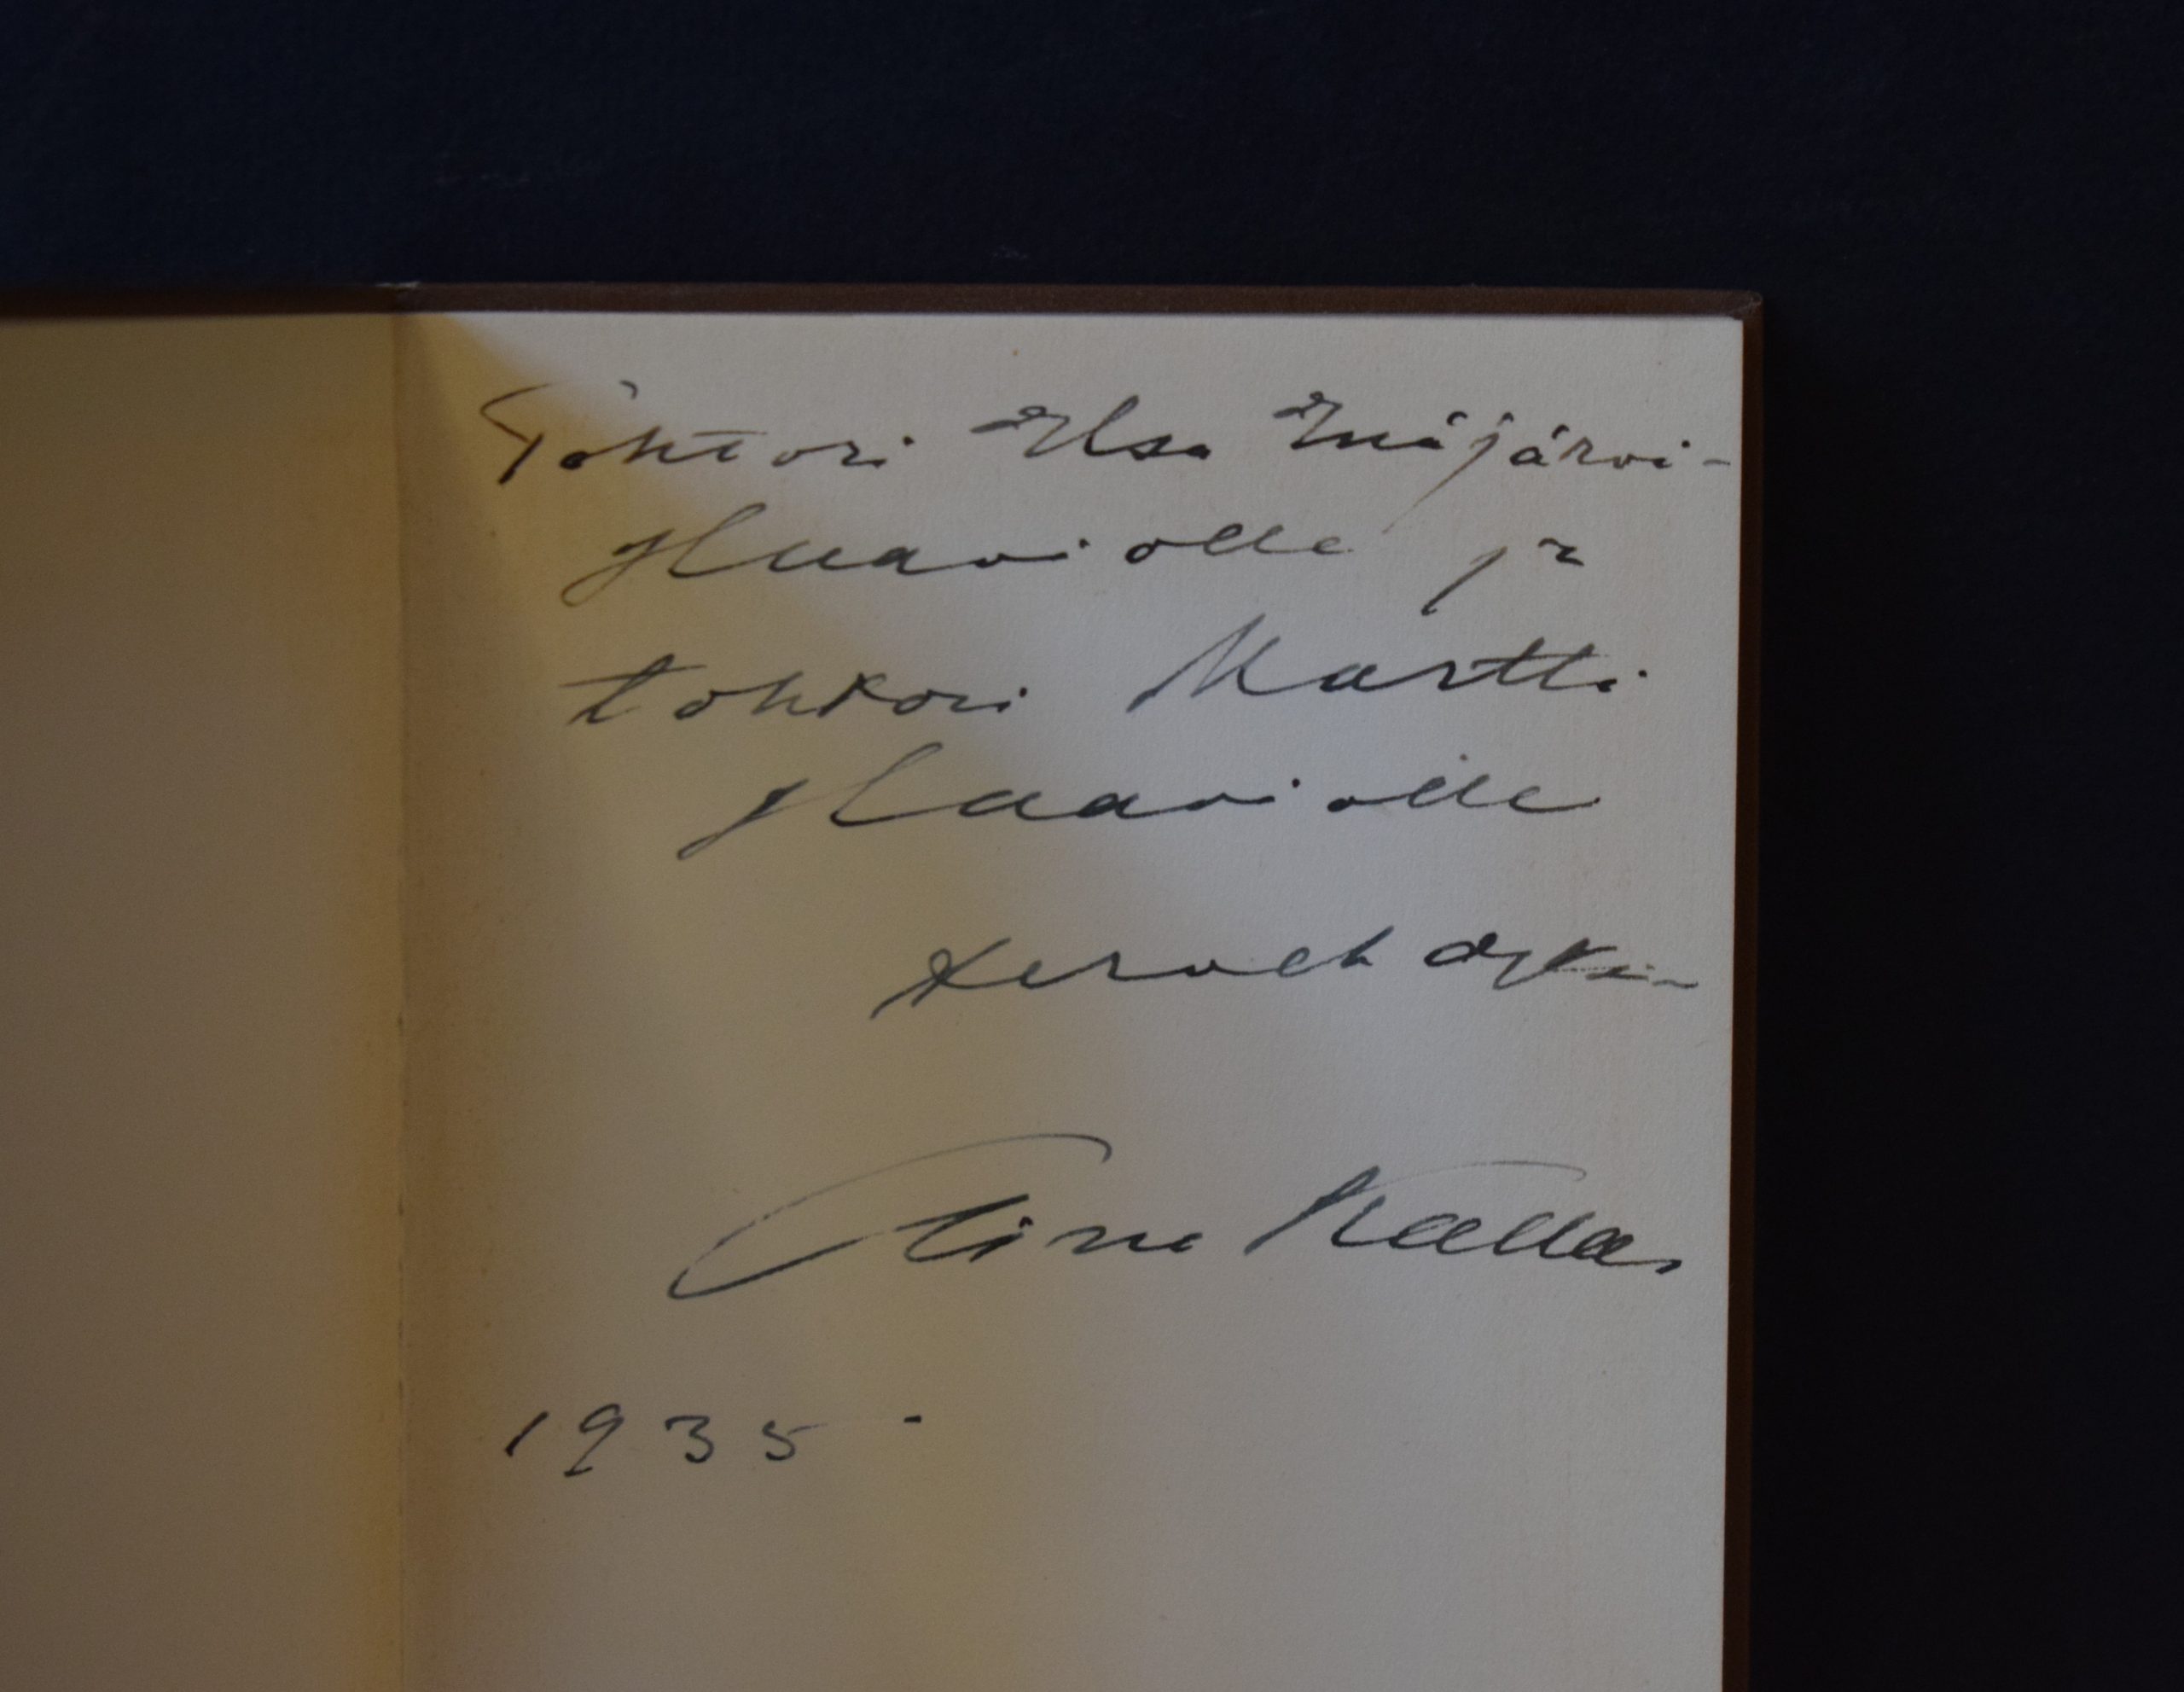 Tohtori Elsa Enäjärvi-
Haaviolle ja
tohtori Martti
Haaviolle
tervehdys
Aino Kallas
1935 -